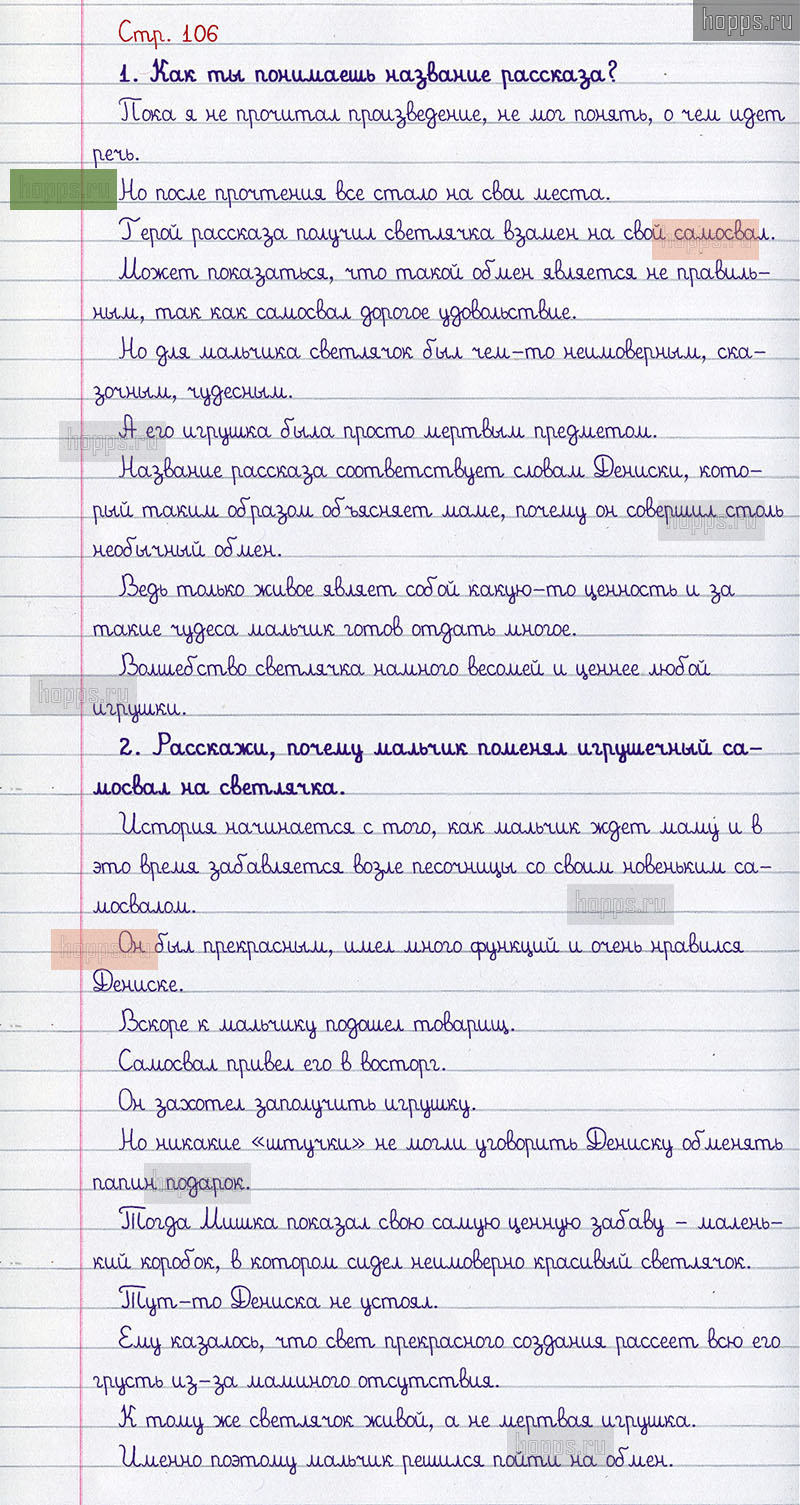 hopps.ru
Стр. 106
1. Как ты понимаешь название рассказа?
Пока я не прочитал произведение, не мог понять, о чем идет
речь.
hopps.ru
Но после прочтения все стало на свои места.
Герой рассказа получил светлячка взамен на свой самосвал.
hopps.ru
Может показаться, что такой обмен является не правиль-
ным, так как самосвал дорогое удовольствие.
Но для мальчика светлячок был чем-то неимоверным, ска-
зочным, чудесным.
hopps.ru
А его игрушка была просто мертвым предметом.
Название рассказа соответствует словам Дениски, кото-
рый таким образом объясняет маме, почему он совершил столь
hopps.ru
необычный обмен.
Ведь только живое являет собой какую-то ценность и за
такие чудеса мальчик готов отдать многое.
Волшебство светлячка намного весомей и ценнее любой
hopps.ru
игрушки.
2. Расскажи, почему мальчик поменял игрушечный са-
мосвал на светлячка.
История начинается с того, как мальчик ждет маму и в
это время забавляется возле песочницы со своим новеньким са-
мосвалом.
hopps.ru
Он был прекрасным, имел много функций и очень нравился
hopps.ru
Дениске.
Вскоре к мальчику подошел товарищ.
Самосвал привел его в восторг.
Он захотел заполучить игрушку.
Но никакие «штучки» не могли уговорить Дениску обменять
папин подарок.
hopps.ru
Тогда Мишка показал свою самую ценную забаву – малень-
кий коробок, в котором сидел неимоверно красивый светлячок.
Тут-то Дениска не устоял.
Ему казалось, что свет прекрасного создания рассеет всю его
грусть из-за маминого отсутствия.
К тому же светлячок живой, а не мертвая игрушка.
hopps.ru
Именно поэтому мальчик решился пойти на обмен.